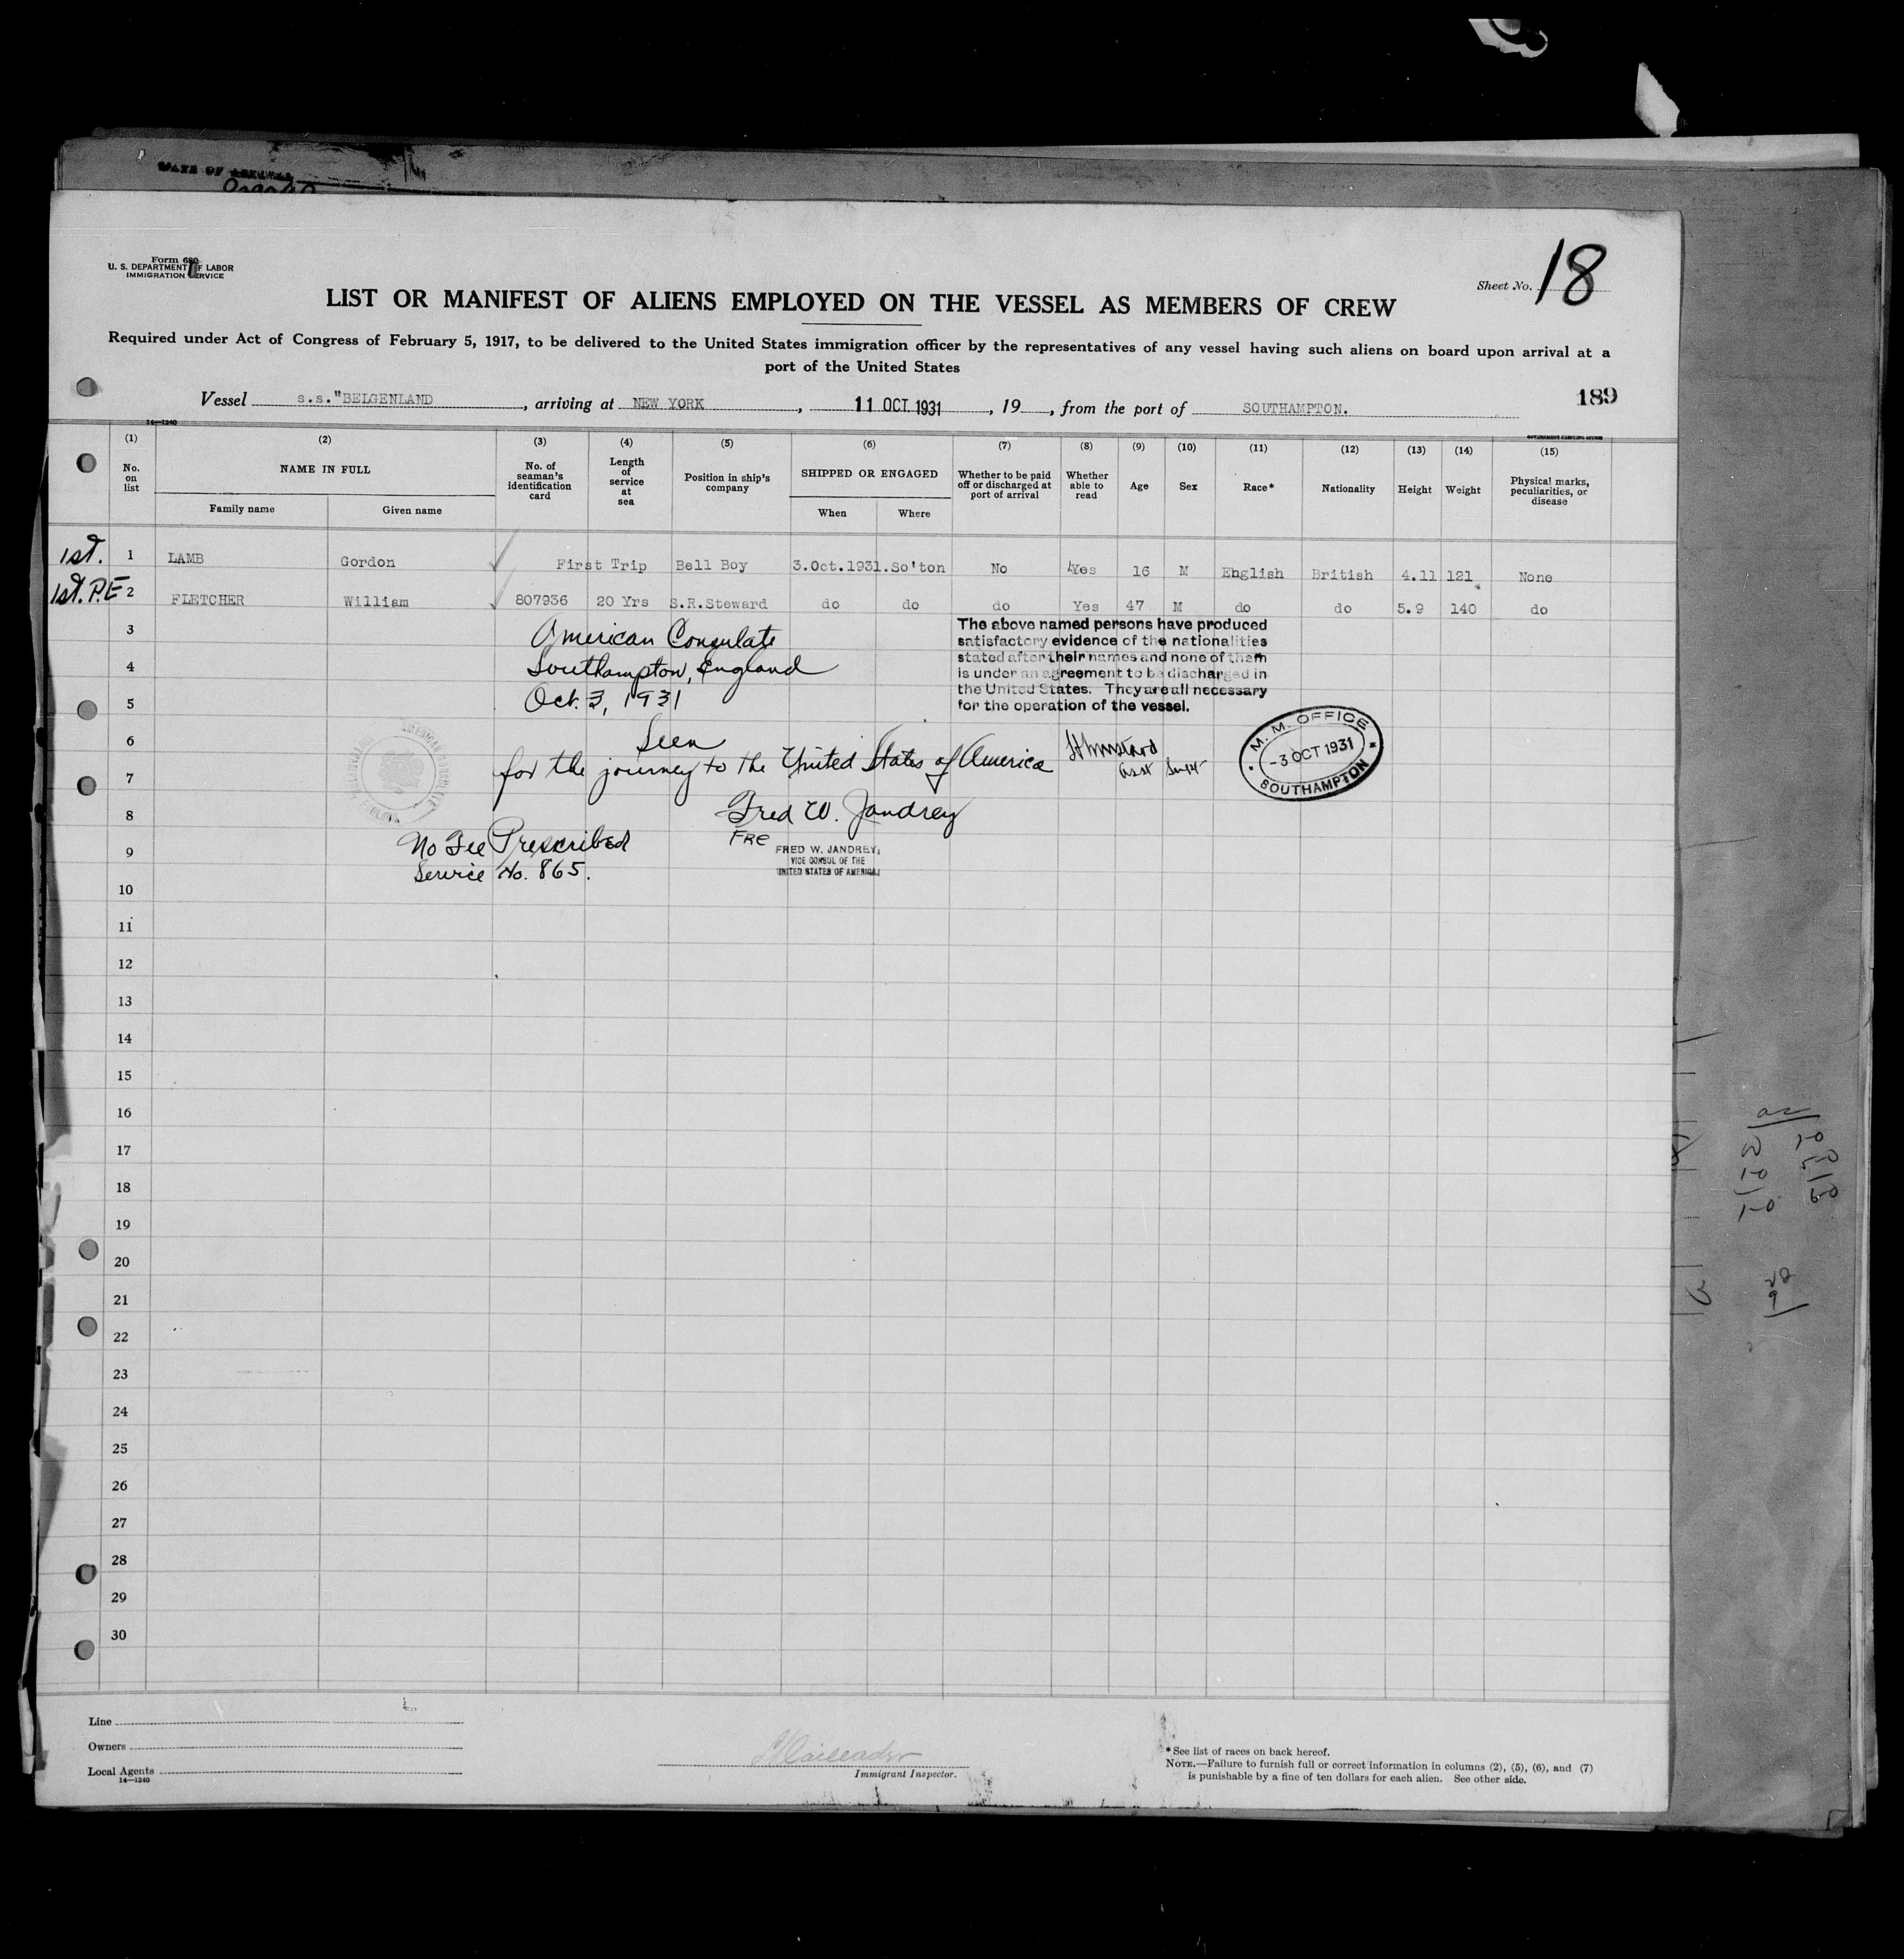 STATE OF
Form 680
U. S. DEPARTMENT OF LABOR
IMMIGRATION SERVICE
Sheet No. 18
LIST OR MANIFEST OF ALIENS EMPLOYED ON THE VESSEL AS MEMBERS OF CREW
Required under Act of Congress of February 5, 1917, to be delivered to the United States immigration officer by the representatives of any vessel having such aliens on board upon arrival at a
port of the United States
189
Vessel s.s."BELGENLAND, arriving at NEW YORK, 11 OCT 1931, 19, from the port of SOUTHAMPTON.
14—1240
GOVERNMENT PRINTING OFFICE
(1) (2) (3) (4) (5) (6) (7) (8) (9) (10) (11) (12) (13) (14) (15)
No. on list
NAME IN FULL
Family name Given name
No. of seaman's identification card
Length of service at sea
Position in ship's company
SHIPPED OR ENGAGED
When Where
Whether to be paid off or discharged at port of arrival
Whether able to read
Age
Sex
Race*
Nationality
Height
Weight
Physical marks, peculiarities, or disease
1st. 1 LAMB Gordon First Trip Bell Boy 3.Oct.1931.So'ton No Yes 16 M English British 4.11 121 None
1st. P.E 2 FLETCHER William 807936 20 Yrs S.R.Steward do do do Yes 47 M do do 5.9 140 do
3
4
5
6
7
8
9
10
11
12
13
14
15
16
17
18
19
20
21
22
23
24
25
26
27
28
29
30
American Consulate
Southampton, England
Oct. 3, 1931
Seen
for the journey to the United States of America
Fred W. Jandrey
FRE
FRED W. JANDREY,
VICE CONSUL OF THE
UNITED STATES OF AMERICA.
No Fee Prescribed
Service No. 865.
The above named persons have produced
satisfactory evidence of the nationalities
stated after their names and none of them
is under an agreement to be discharged in
the United States. They are all necessary
for the operation of the vessel.
Asst Supt
M. M. OFFICE
-3 OCT 1931
SOUTHAMPTON
Line
Owners
Local Agents
14—1240
Immigrant Inspector.
*See list of races on back hereof.
NOTE.—Failure to furnish full or correct information in columns (2), (5), (6), and (7)
is punishable by a fine of ten dollars for each alien. See other side.